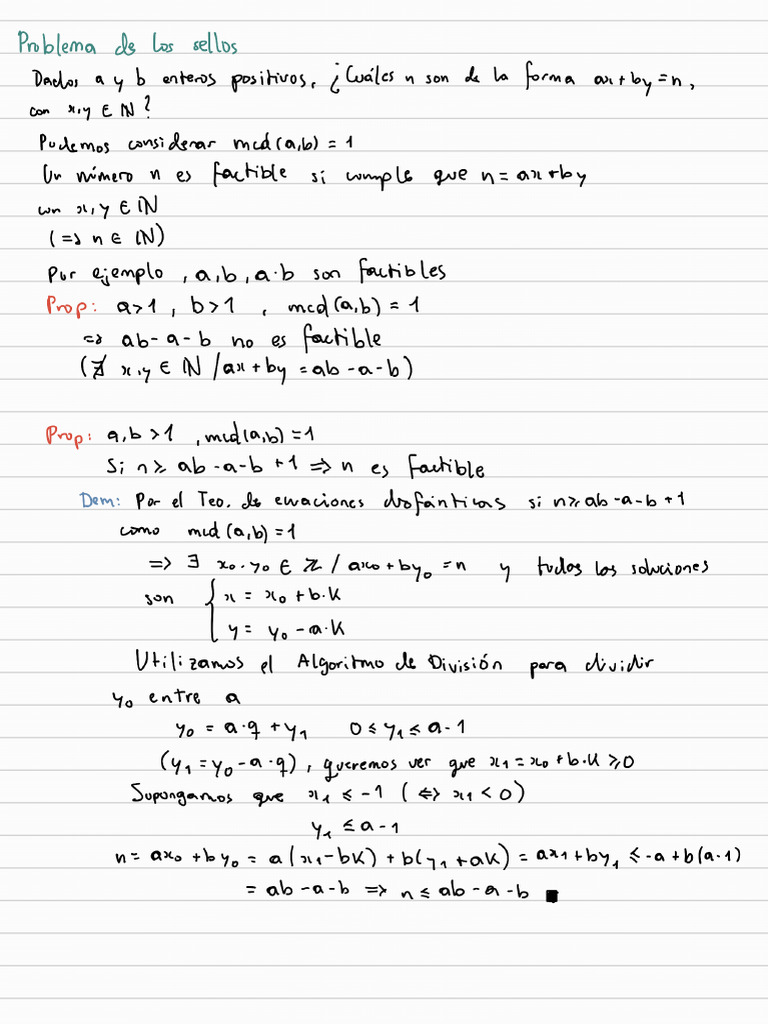 Problema de los sellos
Dados a y b enteros positivos, ¿Cuáles n son de la forma ax+by=n,
con x,y ∈ ℕ?
Podemos considerar mcd(a,b) = 1
Un número n es factible si cumple que n = ax+by
con x,y ∈ ℕ
(⇒ n ∈ ℕ)
Por ejemplo, a,b, a·b son factibles
Prop: a>1, b>1, mcd(a,b) = 1
⇒ ab-a-b no es factible
(∄ x,y ∈ ℕ / ax+by = ab-a-b)
Prop: a,b >1, mcd(a,b)=1
Si n ≥ ab-a-b+1 ⇒ n es factible
Dem: Por el Teo. de ecuaciones diofánticas si n ≥ ab-a-b+1
como mcd(a,b)=1
⇒ ∃ x₀,y₀ ∈ ℤ / ax₀+by₀ = n y todas las soluciones
son { x = x₀ + b·k
y = y₀ - a·k
Utilizamos el Algoritmo de División para dividir
y₀ entre a
y₀ = a·q + y₁ 0 ≤ y₁ ≤ a-1
(y₁ = y₀ - a·q), queremos ver que x₁ = x₀ + b·k ≥ 0
Supongamos que x₁ ≤ -1 (⇔ x₁ < 0)
y₁ ≤ a-1
n = ax₀ + by₀ = a(x₁-bk) + b(y₁+ak) = ax₁+by₁ ≤ -a+b(a-1)
= ab-a-b ⇒ n ≤ ab-a-b ■